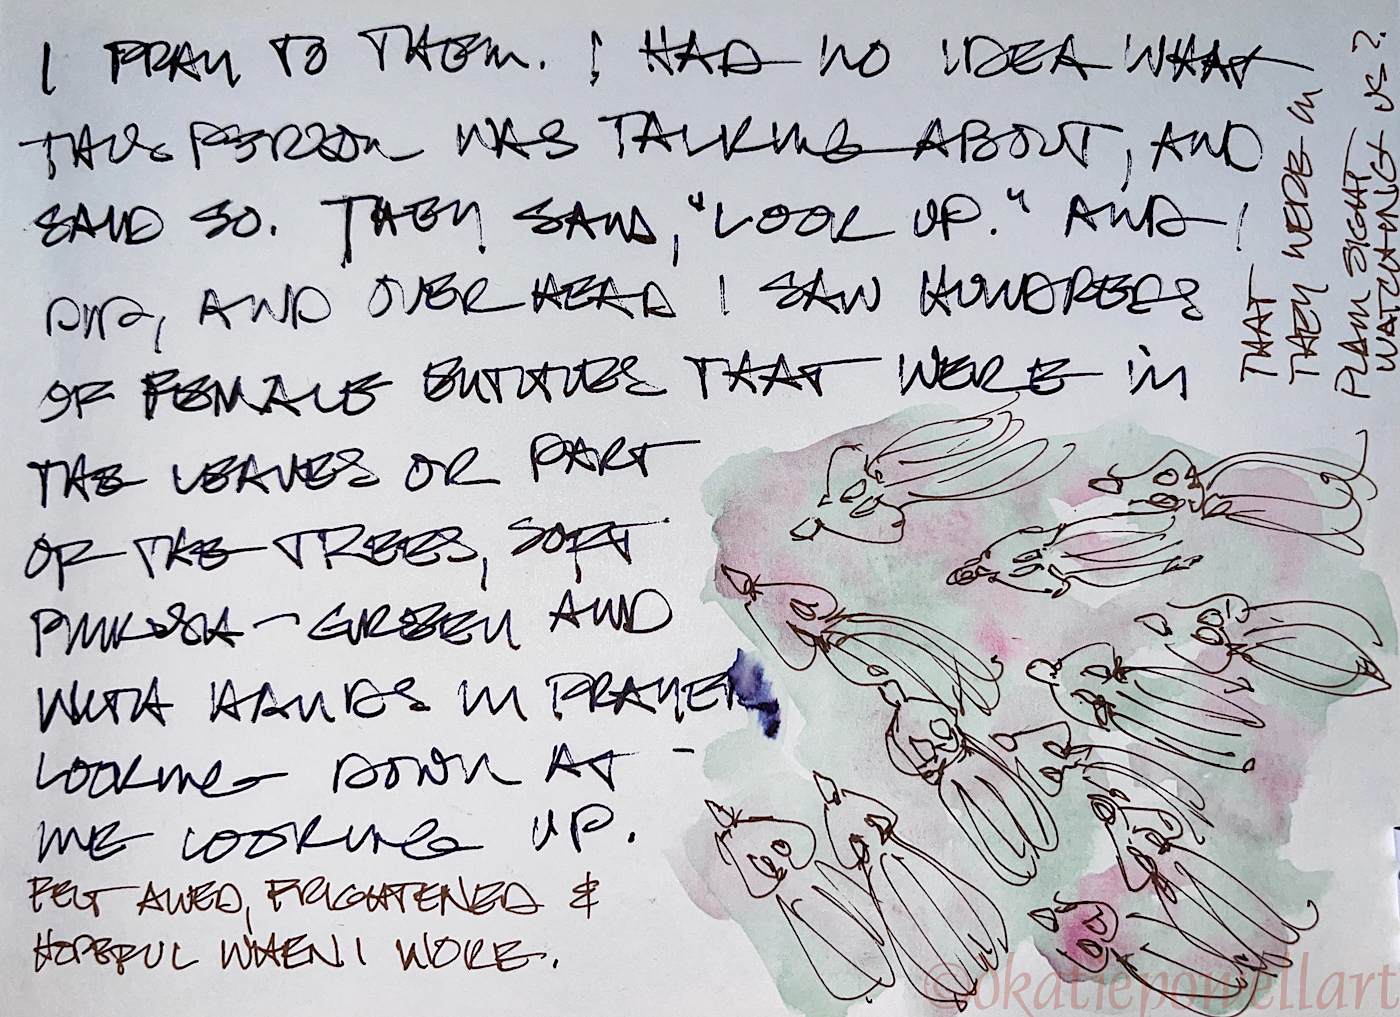 I PRAY TO THEM. I HAD NO IDEA WHAT
THIS PERSON WAS TALKING ABOUT, AND
SAID SO. THEY SAID, "LOOK UP." AND I
DID, AND OVERHEAD I SAW HUNDREDS
OF FEMALE ENTITIES THAT WERE IN
THE LEAVES OR PART
OF THE TREES, SOFT
PINKISH-GREEN AND
WITH HANDS IN PRAYER
LOOKING DOWN AT -
ME LOOKING UP.
FELT AWED, FRIGHTENED &
HOPEFUL WHEN I WOKE.
THAT
THEY WERE IN
PLAIN SIGHT
WATCHING US?
©okatiepowellart